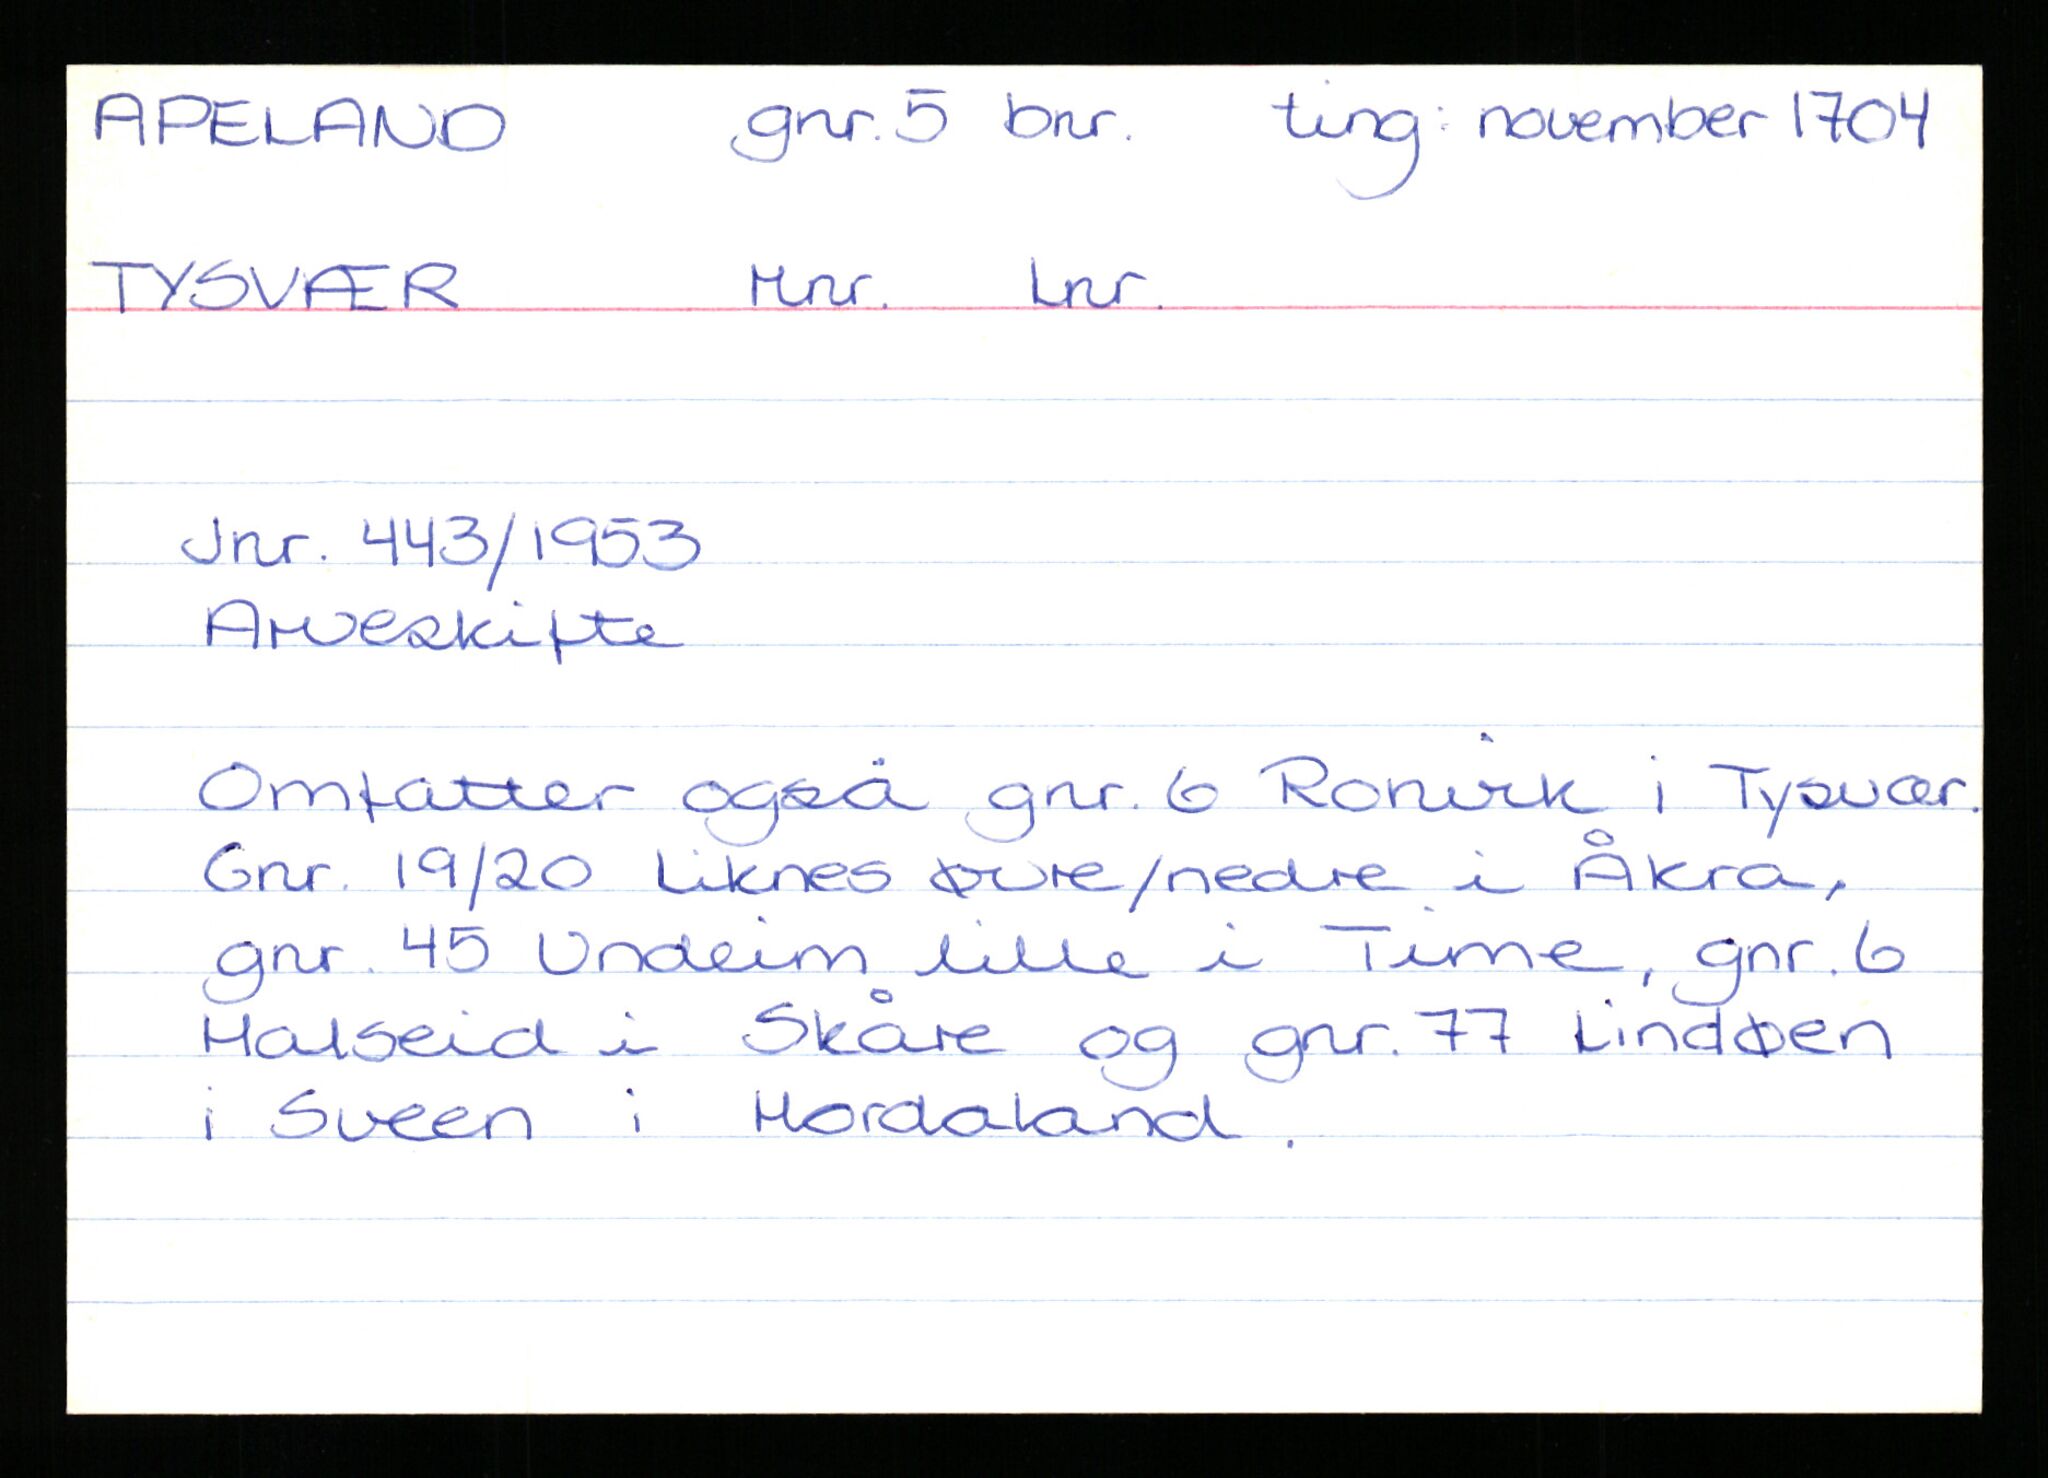 APELAND gnr. 5 bnr. ting: november 1704
TYSVÆR Mnr. Lnr.
Jnr. 443/1953
Arveskifte
Omfatter også gnr. 6 Ronvik i Tysvær.
Gnr. 19/20 Liknes øvre/nedre i Åkra,
gnr. 45 Undeim lille i Time, gnr. 6
Halseid i Skåre og gnr. 77 Lindøen
i Sveen i Hordaland.